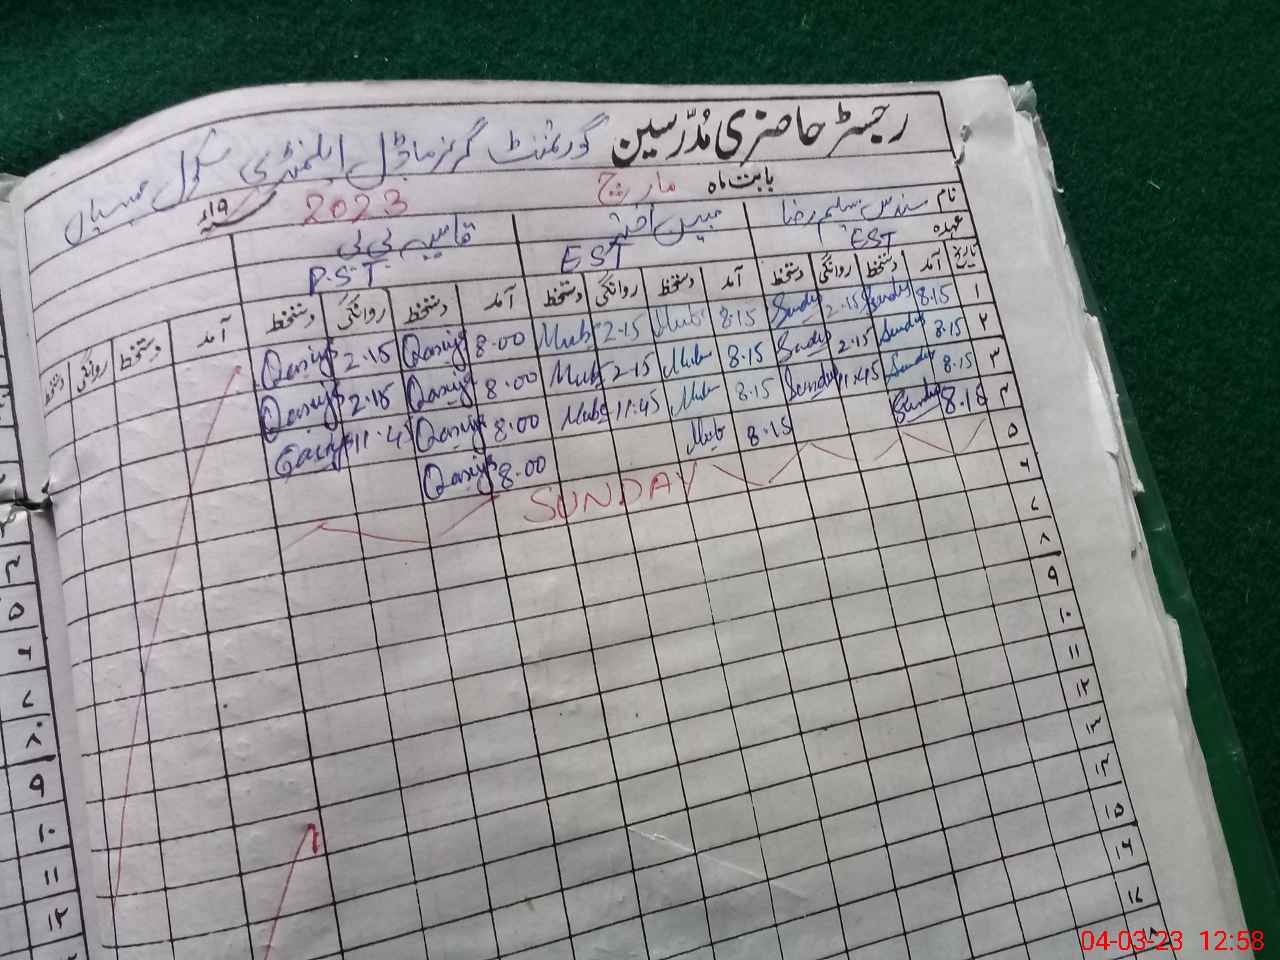 رجسٹر حاضری مُدرّسین گورنمنٹ گرلز ماڈل ایلیمنٹری سکول
بابت ماہ مارچ 2023 ۱۹ء
نام سندس سلیم رضا مبین اختر قاسیہ بی بی
عہدہ EST EST P.S.T
تاریخ آمد دستخط روانگی دستخط آمد دستخط روانگی دستخط آمد دستخط روانگی دستخط آمد دستخط روانگی دستخط
۱ 8.15 Sundus 2.15 Sundus 8.15 Mub 2.15 Mub 8.00 Qasiya 2.15 Qasiya
۲ 8.15 Sundus 2.15 Sundus 8.15 Mub 2.15 Mub 8.00 Qasiya 2.15 Qasiya
۳ 8.15 Sundus 11:45 Sundus 8.15 Mub 11:45 Mub 8.00 Qasiya 11:45 Qasiya
۴ 8.15 Sundus 8.15 Mub 8.00 Qasiya
۵ SUNDAY
۶
۷
۸
۹
۱۰
۱۱
۱۲
۱۳
۱۴
۱۵
۱۶
۱۷
۱۸
۵
۶
۷
۸
۹
۱۰
۱۱
۱۲
04-03-23 12:58